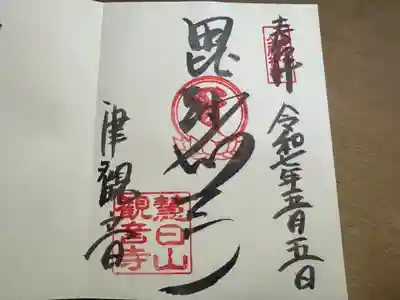 奉拝
令和七年五月五日
毘沙門天
津観音
慧日山
観音寺